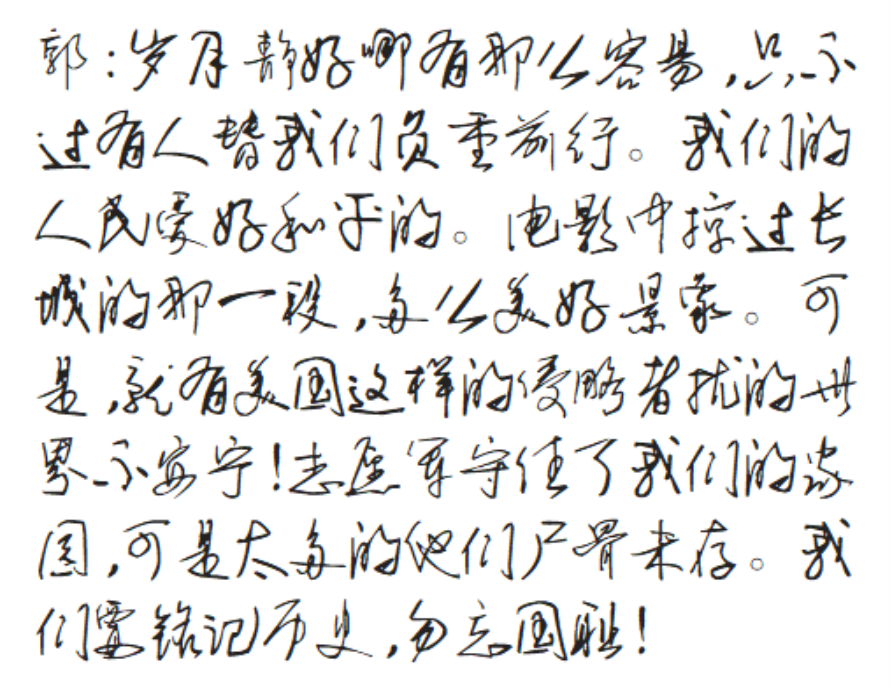 郭:岁月静好哪有那么容易,只不
过有人替我们负重前行。我们的
人民爱好和平的。电影中掠过长
城的那一段,多么美好景象。可
是,就有美国这样的侵略者扰的世
界不安宁!志愿军守住了我们的家
国,可是太多的他们尸骨未存。我
们要铭记历史,勿忘国耻!